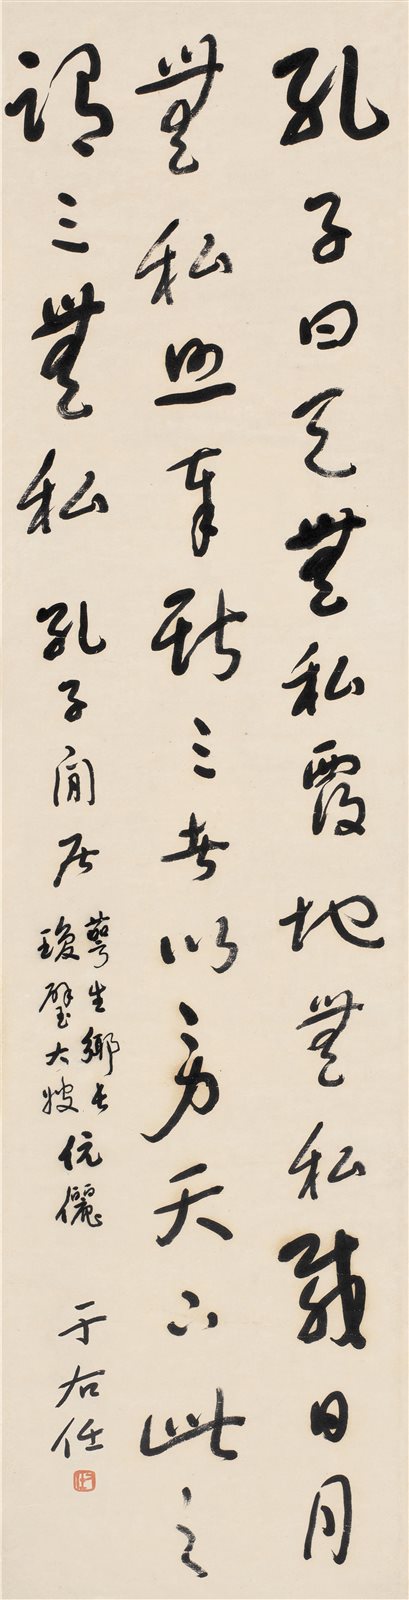 孔子曰天無私覆地無私載日月
無私照奉斯三者以勞天下此之
謂三無私
孔子閒居
萼生鄉長
瓊璧大嫂
伉儷
于右任